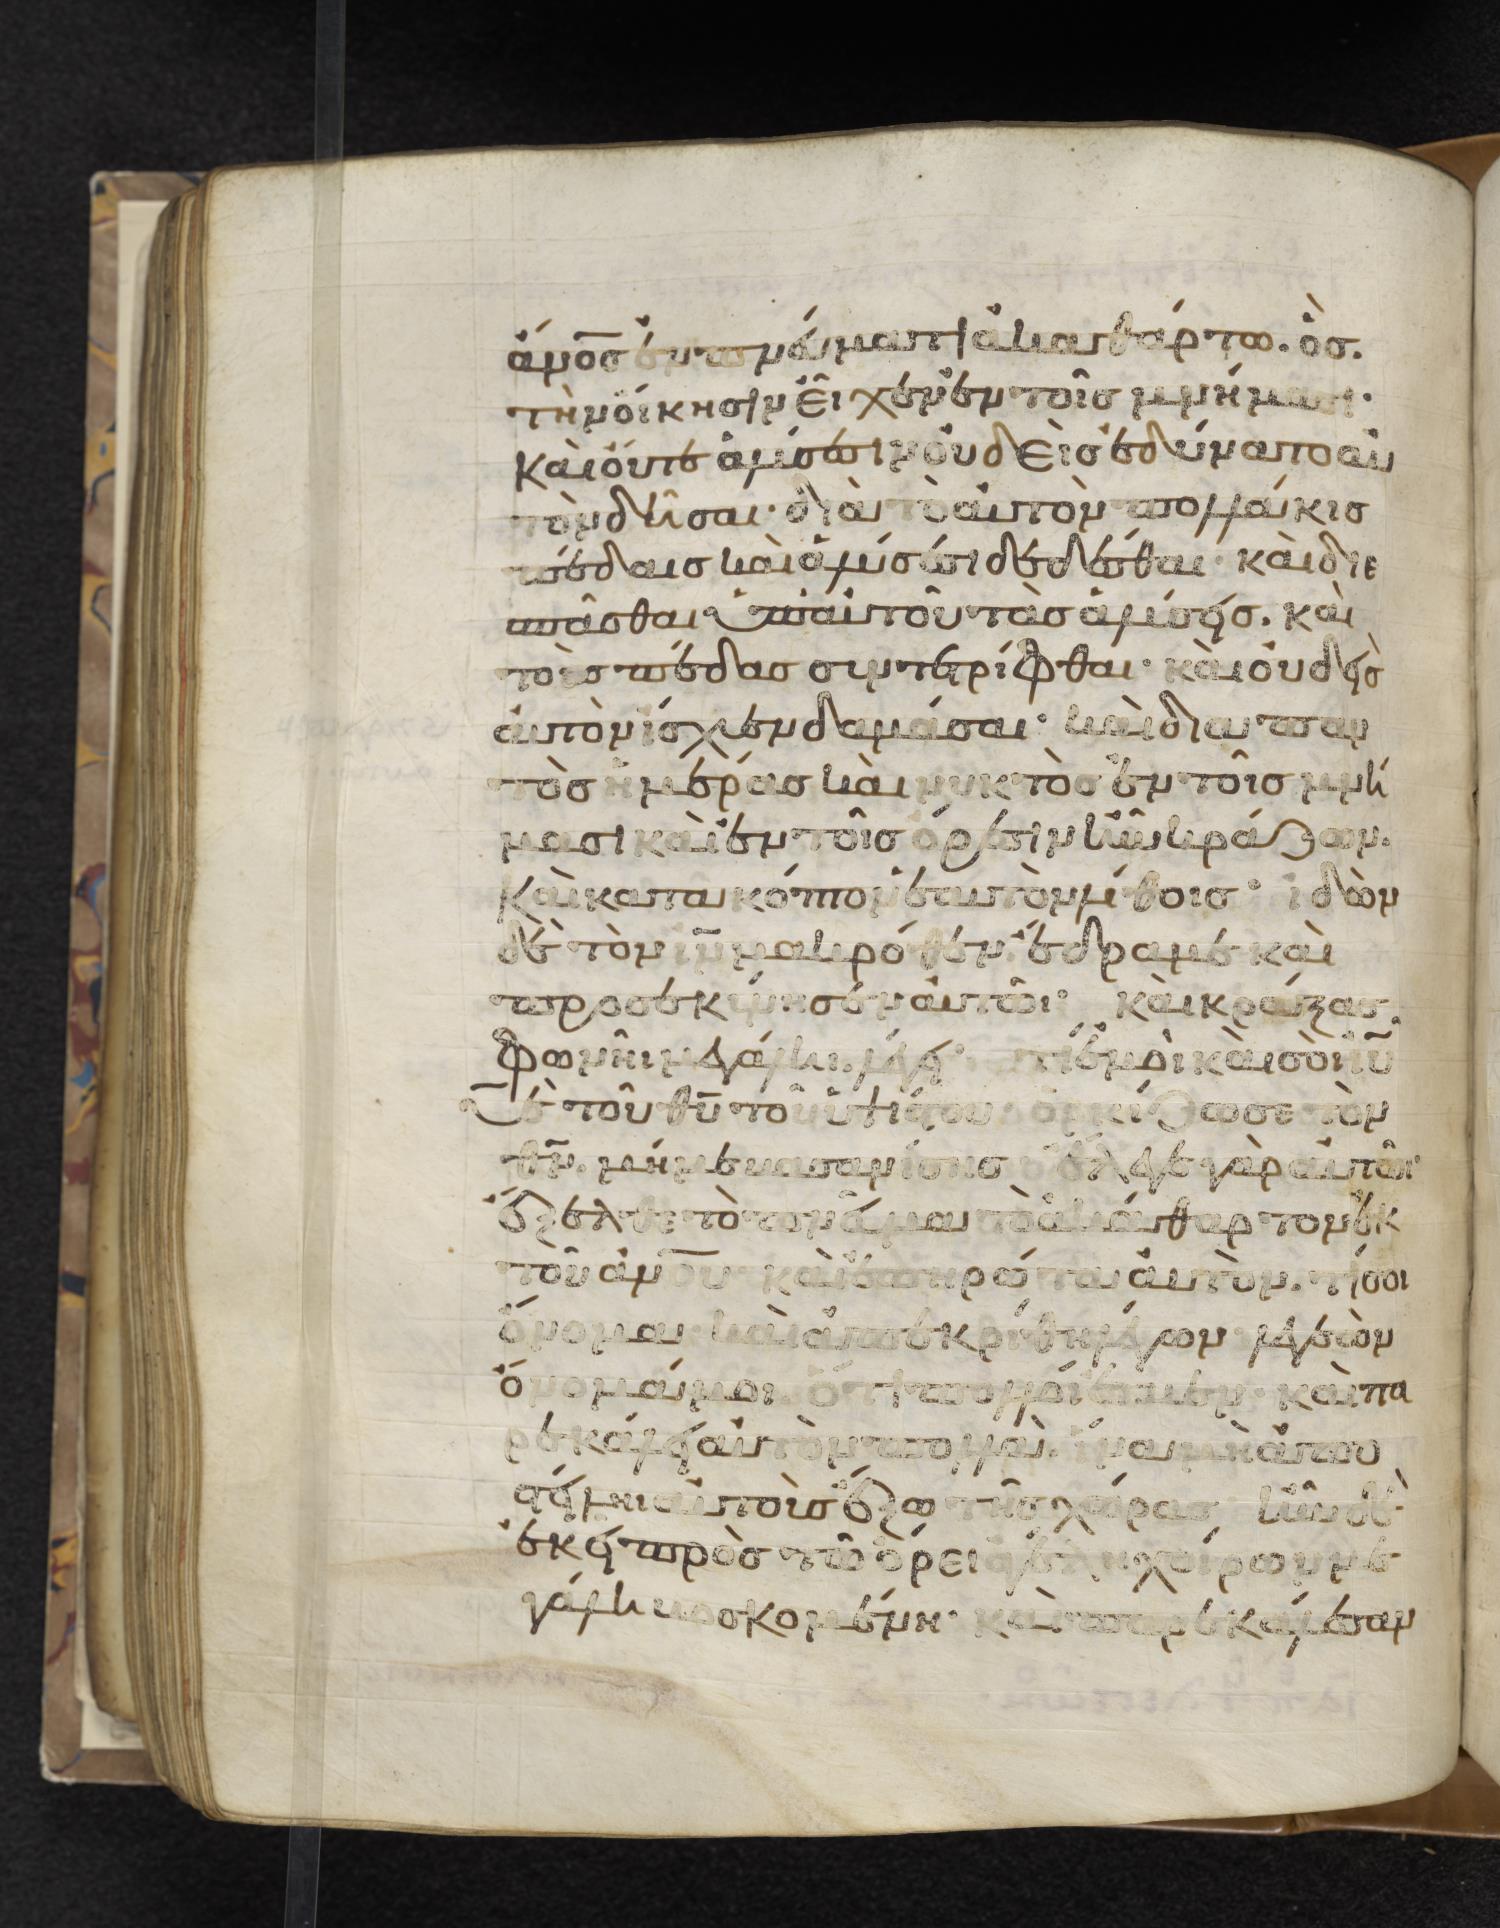 ἀνο̅σ ἐν πνεύματι ἀκαθάρτω. ὃσ.
τὴν οἴκησιν εἶχεν ἐν τοῖσ μνήμασι·
καὶ οὔτε ἁλύσεσιν οὐδεὶσ ἐδύνατο αὐ
τὸν δῆσαι· διὰ τὸ αὐτὸν πολλάκισ
πέδαισ καὶ ἁλύσεσι δεδέσθαι· καὶ διε
σπᾶσθαι ὑπ' αὐτοῦ τὰσ ἁλύσεισ. καὶ
τὰσ πέδασ συντετρίφθαι· καὶ οὐδεὶσ
αὐτὸν ἴσχυεν δαμάσαι· καὶ δια παν
τὸσ ἡμέρασ καὶ νυκτὸσ ἐν τοῖσ μνή
μασι καὶ ἐν τοῖσ ὄρεσιν ἦν κράζων.
καὶ κατακόπτον ἑαυτὸν λίθοισ· ἰδὼν
δὲ τὸν ιν̅ μακρόθεν. ἔδραμε καὶ
προσεκύνησεν αὐτῶι· καὶ κράξασ.
φωνῆι μεγάλη. λέγει· τί ἐμοὶ καὶ σοὶ ιυ̅
υἱὲ τοῦ θυ̅ τοῦ ὑψίστου· ὁρκίζω σε τὸν
θν̅. μή με βασανίσησ· ἔλεγε γὰρ αὐτῶι·
ἔξελθε τὸ πνεῦμα τὸ ἀκάθαρτον ἐκ
τοῦ ἀνο̅υ· καὶ ἐπηρώτα αὐτὸν. τί σοι
ὄνομα· καὶ ἀπεκρίθη λέγων λεγεὼν
ὄνομά μοι. ὅτι πολλοί ἐσμεν· καὶ πα
ρεκάλει αὐτὸν πολλὰ. ἵνα μὴ ἀπο
στείλη αὐτοὺσ ἔξω τῆσ χώρασ ἦν δὲ
ἐκεῖ πρὸσ τῶ ὄρει ἀγέλη χοίρων με
γάλη βοσκομένη· καὶ παρεκάλεσαν